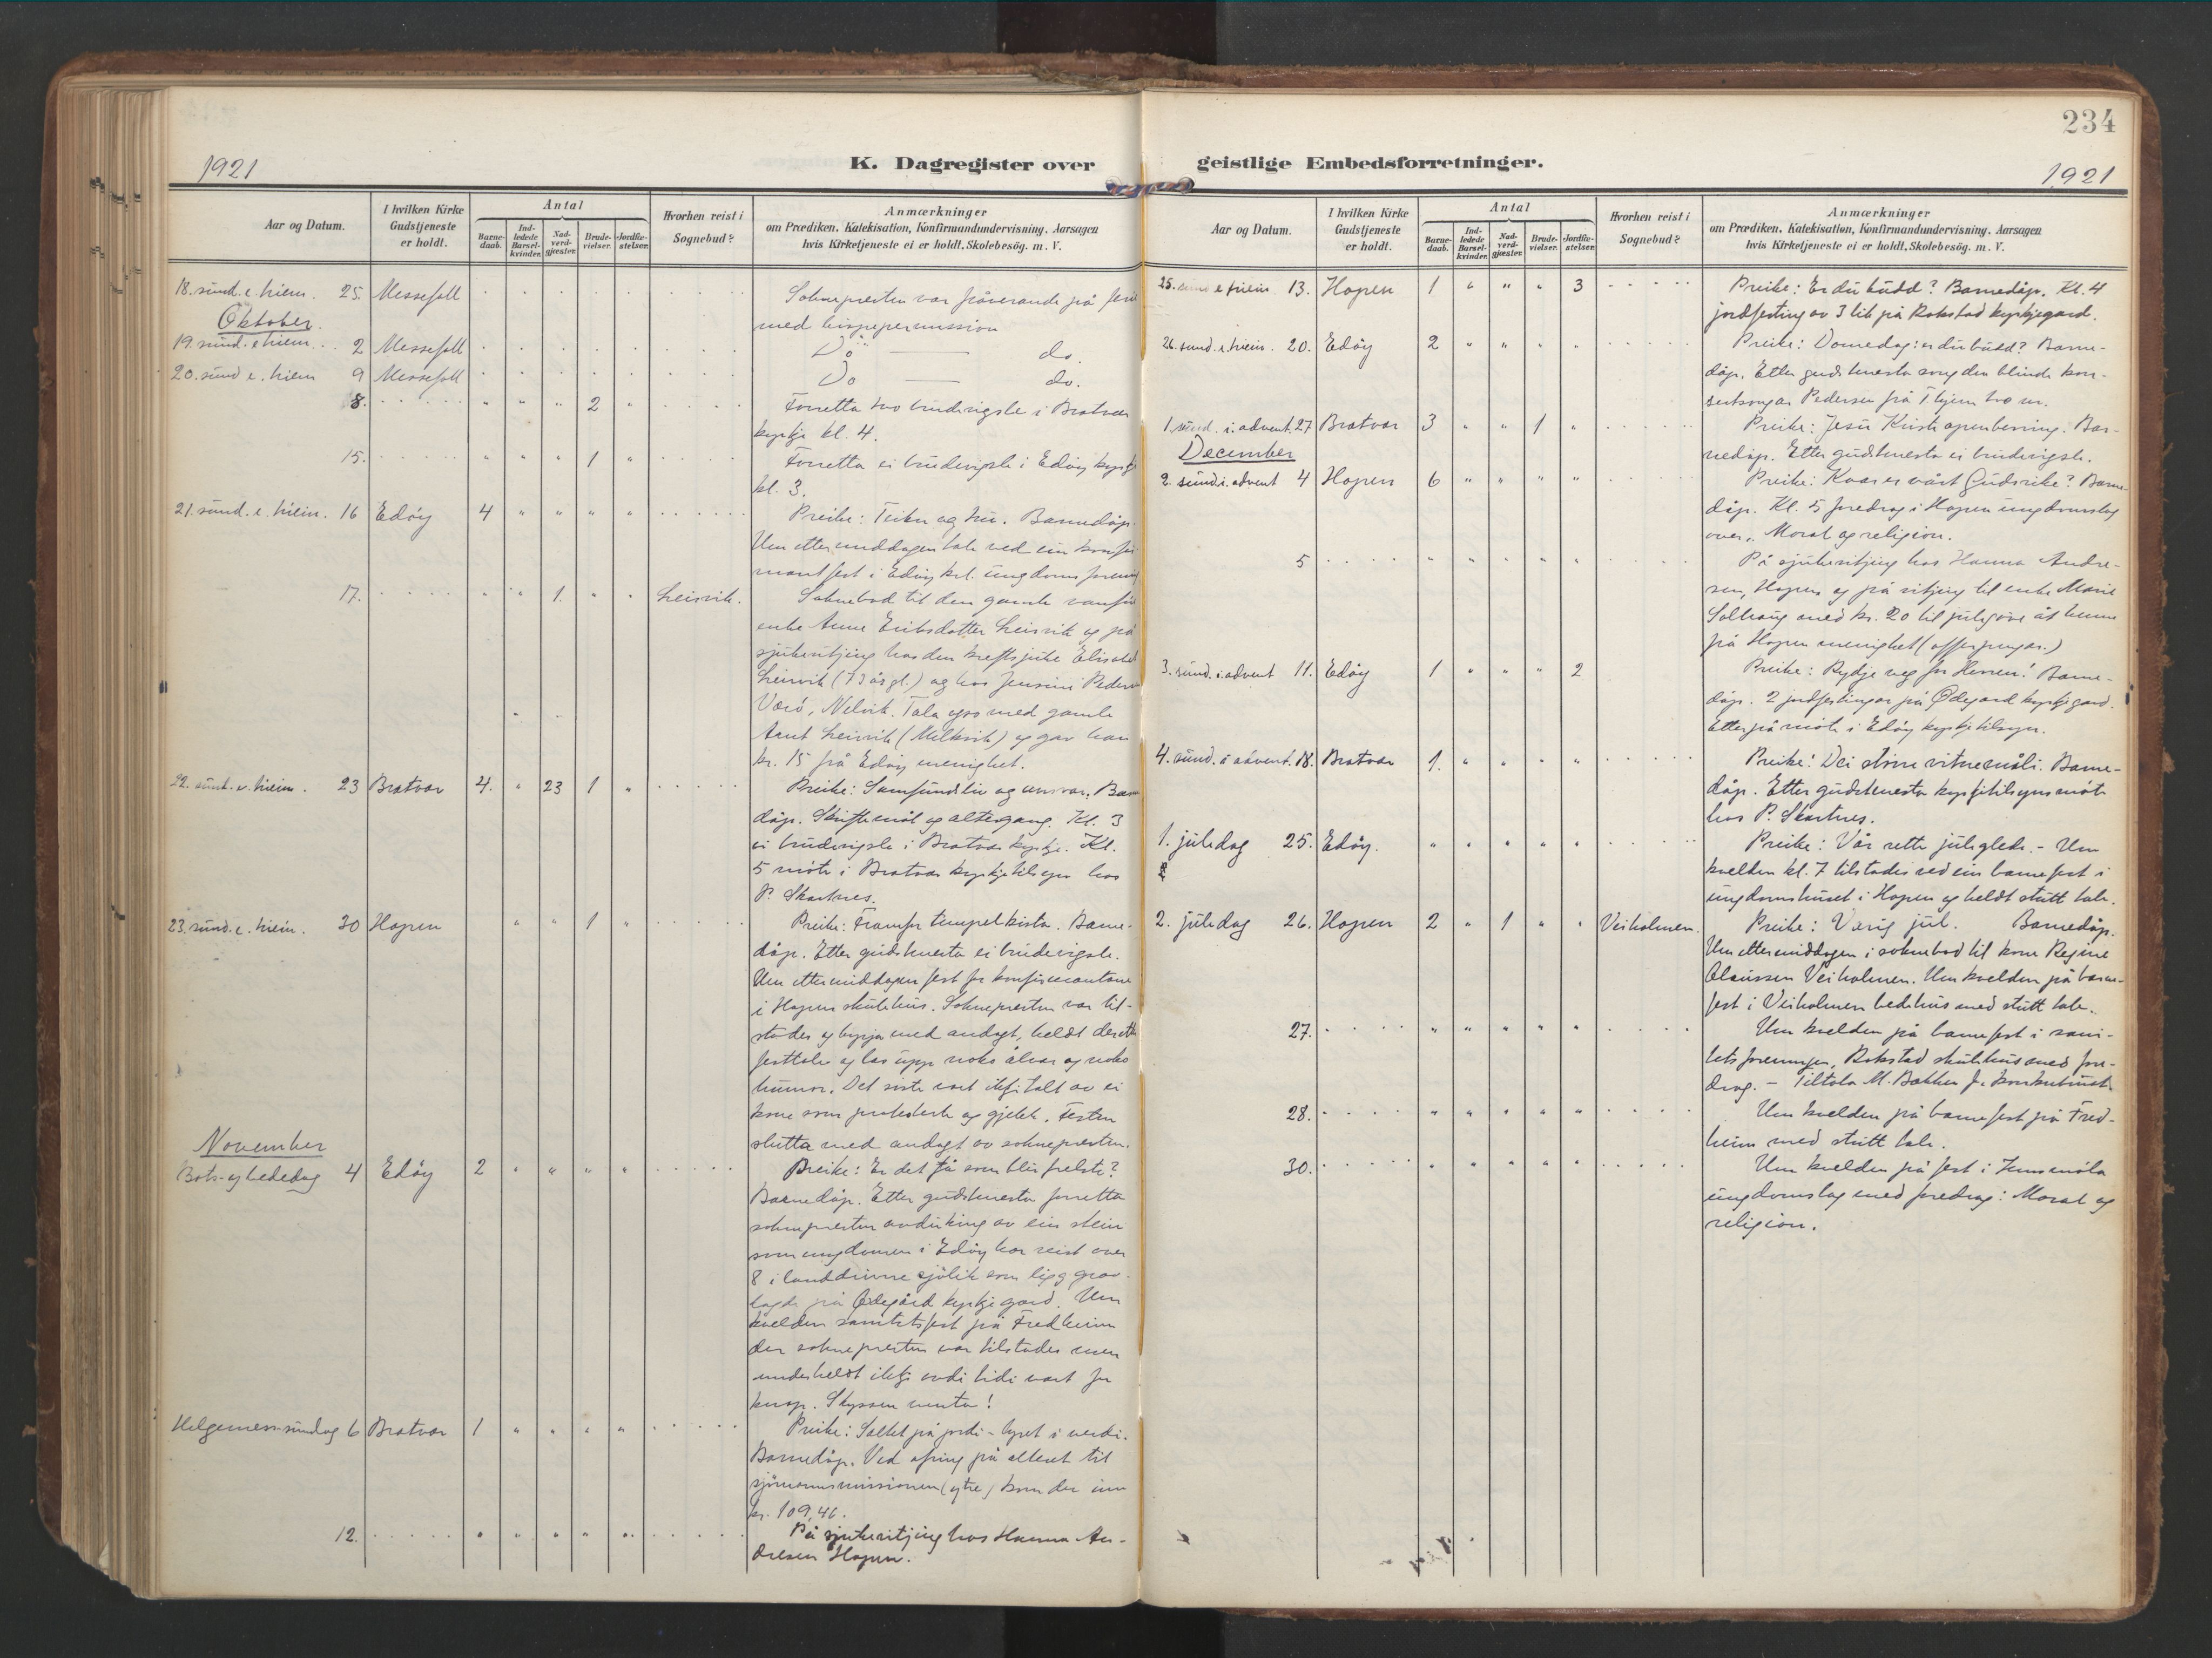 234
1921
K. Dagregister over geistlige Embedsforretninger.
1921
Aar og Datum.
I hvilken Kirke Gudstjeneste er holdt.
Antal
Barne-daab.
Ind-ledede Barsel-kvinder.
Nad-verd-gjæster.
Brude-vielser.
Jordfæ-stelser.
Hvorhen reist i Sognebud?
Anmærkninger
om Prædiken, Katekisation, Konfirmandundervisning, Aarsagen
hvis Kirketjeneste ei er holdt, Skolebesög. m. V.
18. sund. e. triein. 25. Messefall
Sokneprestен var fråverande på
med bispepermission
Oktober.
19. sund. e. triein. 2 Messefall Do — do.
20. sund e. triein 9 Messefall Do — do.
8. " " " 2 " Forretta tvo brudevigsle i Bratvær
kyrkje kl. 4.
15. " " " 1 " Forretta ei brudevigsle i Edöy
kl. 3.
21. sund. e. triein. 16 Edöy 4 " " " " Preike: Teikn og tru. Barnedåp.
Um ettermiddagen tale ved ein
mantfest i Edöy krl. ungdoms
17. " " 1. " " Leirvik. Soknebod til den gamle
enke Anne Eriksdotter Leirvik og på
sjukevitjing hos den kreftsjuke
Leirvik (73 år gl.) og hos Jensine
Værö, Nelvik. Tala ogso med gamle
Arnt Leirvik (Melkvik) og gav han
kr. 15 frå Edöy menighet.
22. sund. e. triein. 23 Bratvær 4. " 23 1 " Preike: Samfundsliv og ansvar.
dåp. Skriftemål og altergang. Kl. 3
ei brudevigsle i Bratvær kyrkje. Kl.
5 möte i Bratvær kyrkjetilsyn hos
P. Skartnes.
23. sund. e. triein. 30 Hopen " " 1 " Preike: Framfor tempelkista. Barne-
dåp. Etter gudstenesta ei brudevigsle.
Um ettermiddagen fest for konfirmantane
i Hopen skulehus. Soknepresten var til-
stades og byrja med andagt, heldt
festtale og las upp noko ålvor og noko
humor. Det siste vart ikkje talt av ei
kone som protesterte og gjekk. Festen
slutta med andagt av soknepresten.
November
Bots- og bededag 4 Edöy 2 " " " " Preike: Er det få som blir frelste?
Barnedåp. Etter gudstenesta forretta
soknepresten avduking av ein stein
som ungdomen i Edöy har reist over
8 ilanddrivne sjölik som ligg grav-
lagde på Ödegård kyrkjegard. Um
kvelden sanitetsfest på Fredheim
der soknepresten var tilstades men
underheldt ikkje avdi tidi vart for
knapp. Skyssen venta!
Helgemess-sundag 6 Bratvær 1 " " " " Preike: Saltet på jordi – lyset i verdi.
Barnedåp. Ved ofring på alteret til
sjömannsmissionen (ytre) kom der inn
kr. 109,46.
12. " " " " " På sjukevitjing hos Hanna An-
dresen Hopen.
Aar og Datum.
I hvilken Kirke Gudstjeneste er holdt.
Antal
Barne-daab.
Ind-ledede Barsel-kvinder.
Nad-verd-gjæster.
Brude-vielser.
Jordfæ-stelser.
Hvorhen reist i Sognebud?
Anmærkninger
om Prædiken, Katekisation, Konfirmandundervisning, Aarsagen
hvis Kirketjeneste ei er holdt, Skolebesög. m. V.
25. sund e triein 13. Hopen 1 " " " 3 Preike: Er du budd? Barnedåp. Kl. 4
jordfesting av 3 lik på Rokstad kyrkjegard.
26. sund. e. triein. 20. Edöy 2 " " " " Preike: Domedag: er du budd? Barne-
dåp. Etter gudstenesta song den blinde kon-
sertsongar Pedersen frå T.hjem tvo nr.
1. sund. i. advent. 27 Bratvær 3 " " 1 " Preike: Jesu Krists openberring. Bar-
nedåp. Etter gudstenesta ei brudevigsle.
December
2. sund. i. advent 4 Hopen 6 " " " " Preike: Kvar er vårt Gudsrike? Barne-
dåp. Kl. 5 foredrag i Hopen ungdomslag
over „ Moral og religion.
5 " " " " " På sjukevitjing hos Hanna Andre-
sen, Hopen og på vitjing til enke Marie
Solhaug med kr. 20 til julegåve åt henne
frå Hopen menighet (offerpengar.)
3. sund. i. advent 11. Edöy 1 " " " 2 Preike: Rydje veg for Herren! Barne-
dåp. 2 jordfestingar på Ödegard kyrkjegard.
Etterpå möte i Edöy kyrkjetilsyn.
4. sund. i advent. 18. Bratvær 1. " " " " Preike: Dei större vitnemåli. Barne-
dåp. Etter gudstenesta kyrkjetilsynsmöte
hos P. Skartnes.
1. juledag 25. Edöy. " " " " " Preike: Vår rette juleglede. – Um
kvelden kl. 7 tilstades ved ein barnefest i
ungdomshuset i Hopen og heldt stutt tale.
2. juledag 26. Hopen 2 " 1 " " Veiholmen. Preike: Verig jul. Barnedåp.
Um ettermiddagen i soknebod til kone Regine
Claussen Veiholmen. Um kvelden på barne-
fest i Veiholmen bedehus med stutt tale.
27. " " " " " Um kvelden på barnefest i sani-
tetsforeningen, Rokstad skulehus med fore-
drag. – Tiltala M. Bakken
28. " " " " " Um kvelden på barnefest på Fred-
heim med stutt tale.
30. " " " " " Um kvelden på fest i Innsmöla
ungdomslag med foredrag: Moral og
religion.